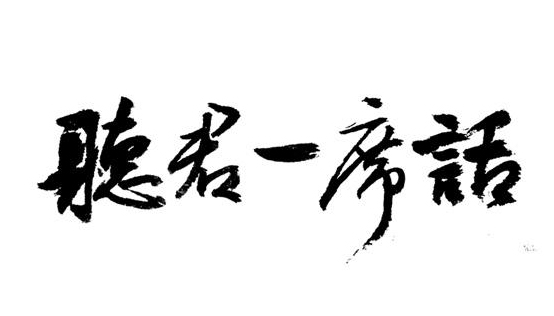 聽君一席話